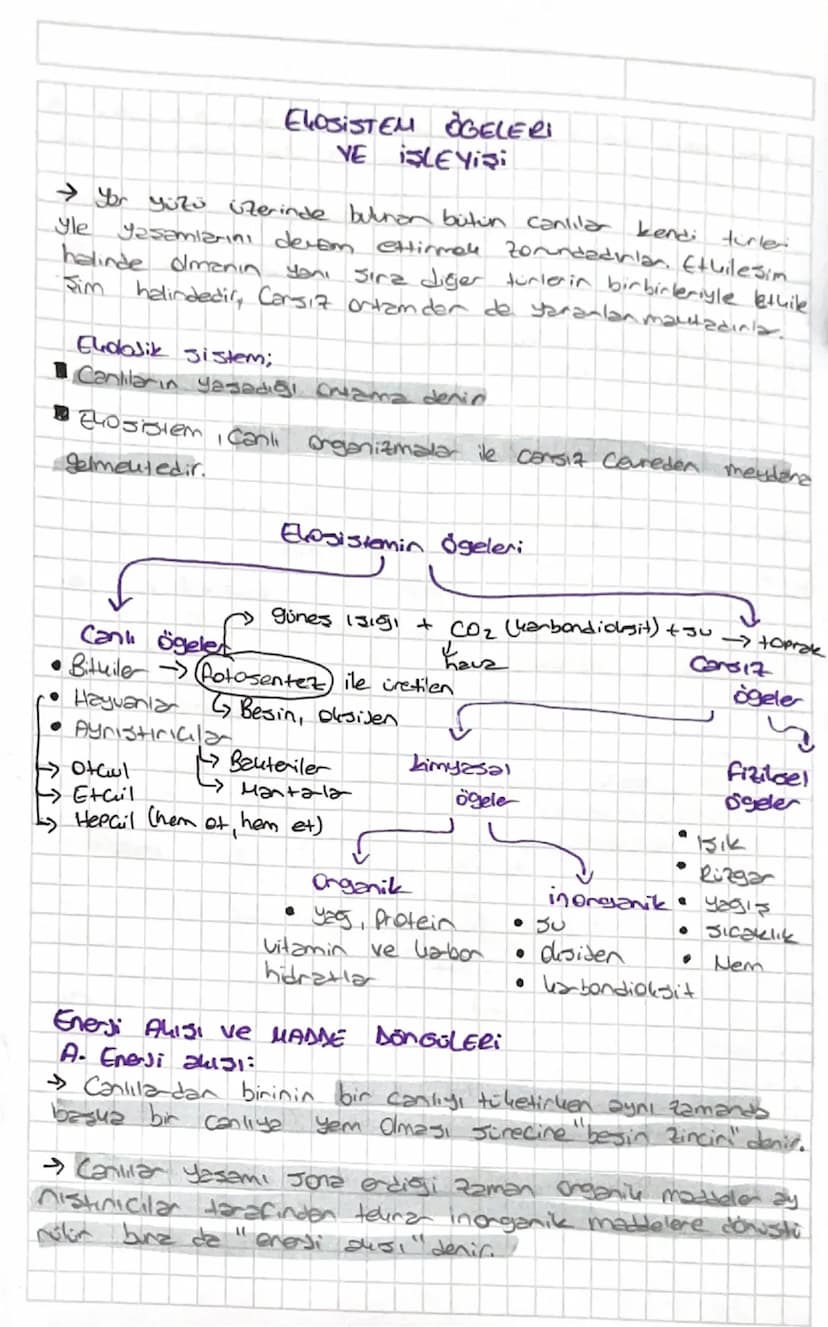 EKOSİSTEM ÖGELERİ
VE İŞLEYİŞİ
→ Yer yüzü üzerinde bulunan bütün canlılar kendi türleri
yle yaşamlarını devam ettirmek zorundadırlar. Etkileşim
halinde olmanın yanı sıra diğer türlerin birbirleriyle etkile
şim halindedir, Cansız ortamdan da yararlanmaktadırlar.
Ekolojik sistem;
Canlıların yaşadığı ortama denir
Ekosistem, canlı organizmalar ile cansız çevreden meydana
gelmektedir.
Ekosistemin ögeleri
→ güneş ışığı + CO2 (karbondioksit) + su → toprak
hava
Canlı ögeler
• Bitkiler → Fotosentez ile üretilen
↳ Besin, oksijen
• Hayvanlar
• Ayrıştırıcılar
↳ Bakteriler
↳ Mantarlar
→ Otçul
→ Etçil
↳ Hepçil (hem ot, hem et)
Cansız
ögeler
kimyasal
ögeler
fiziksel
ögeler
• Işık
• Rüzgar
• yağış
• sıcaklık
• Nem
Organik
• yağ, Protein
vitamin ve karbon
hidratlar
inorganik
• su
• oksijen
• karbondioksit
Enerji AKIŞI ve MADDE DÖNGÜLERİ
A. Enerji akışı:
→ Canlılardan birinin bir canlıyı tüketirken aynı zamanda
başka bir canlıya yem olması sürecine "besin zinciri" denir.
→ Canlılar yaşamı sona erdiği zaman organik maddeler ay
rıştırıcılar tarafından tekrar inorganik maddelere dönüştü
rülür buna da "enerji akışı" denir.